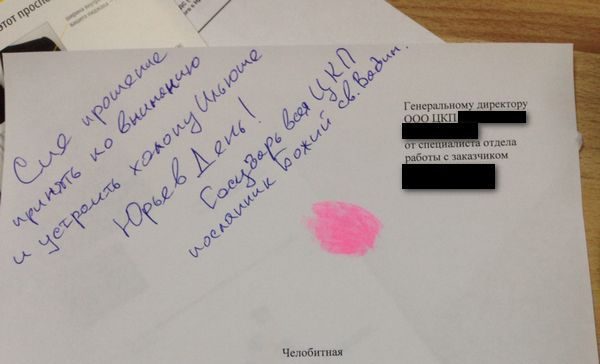 этот проспе
ширина внутр
вашего пиджака –
Сие прошение
принять ко вниманию
и устроить холопу Ильюше
Юрьев День!
Государь всея ЦКП
посланник Божий св. Вадим.
Генеральному директору
ООО ЦКП
от специалиста отдела
работы с заказчиком
Челобитная